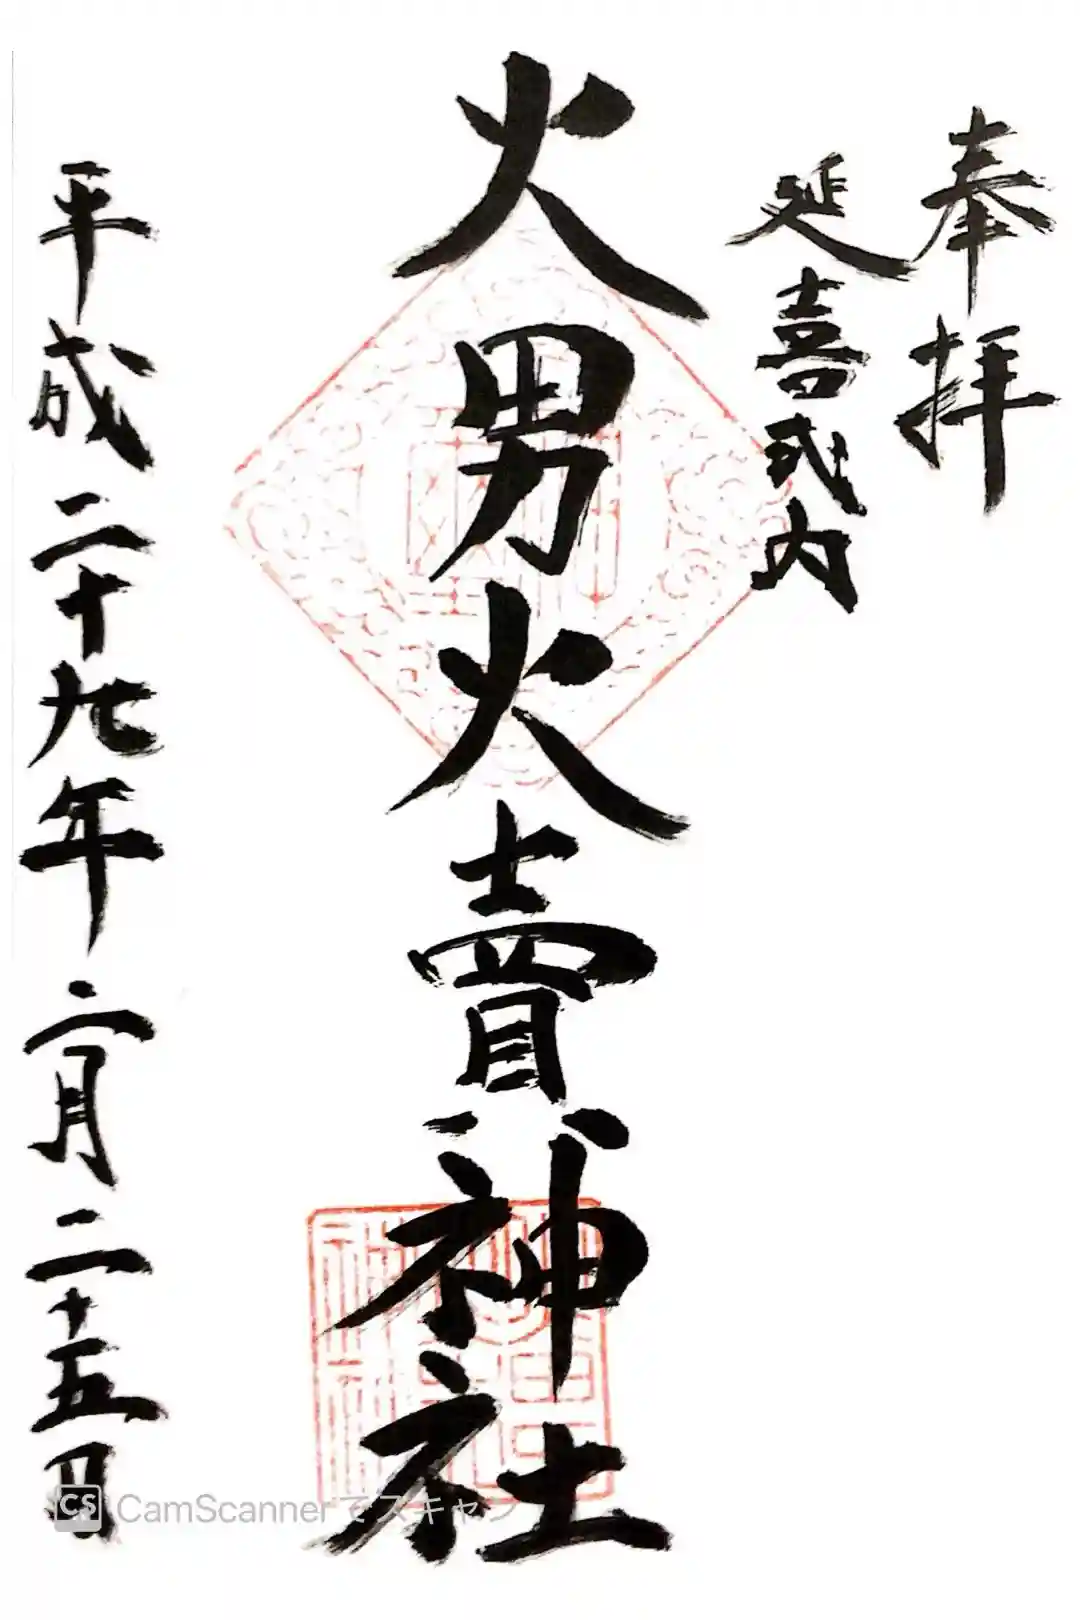 奉拝
延喜式内
火男火賣神社
平成二十九年二月二十五日
CS CamScannerでスキャン